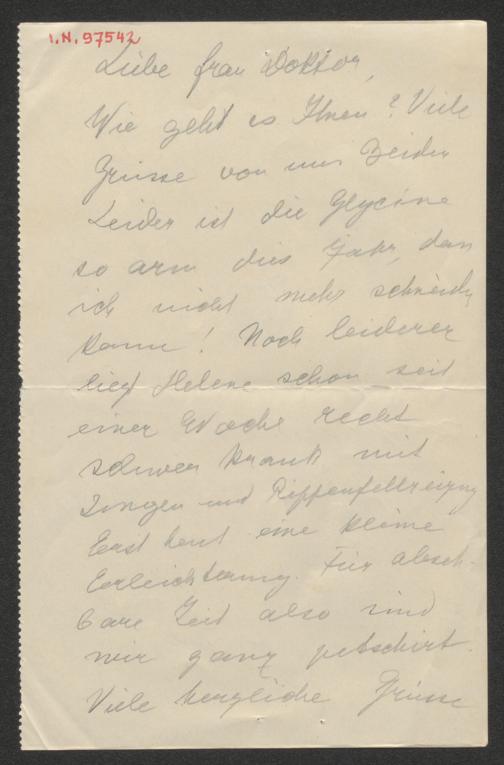 I.N. 97542
Liebe Frau Doktor,
Wie geht es Ihnen? Viele
Grüsse von uns Beiden
Leider ist die Glycine
so arm dies Jahr, dass
ich nicht mehr schneiden
kann! Noch leiderer
liegt Helene schon seit
einer Woche recht
schwer krank mit
Lungen und Rippenfellreizung
Erst heut eine kleine
Erleichterung. Für abseh-
bare Zeit also sind
wir ganz petschirt.
Viele herzliche Grüsse